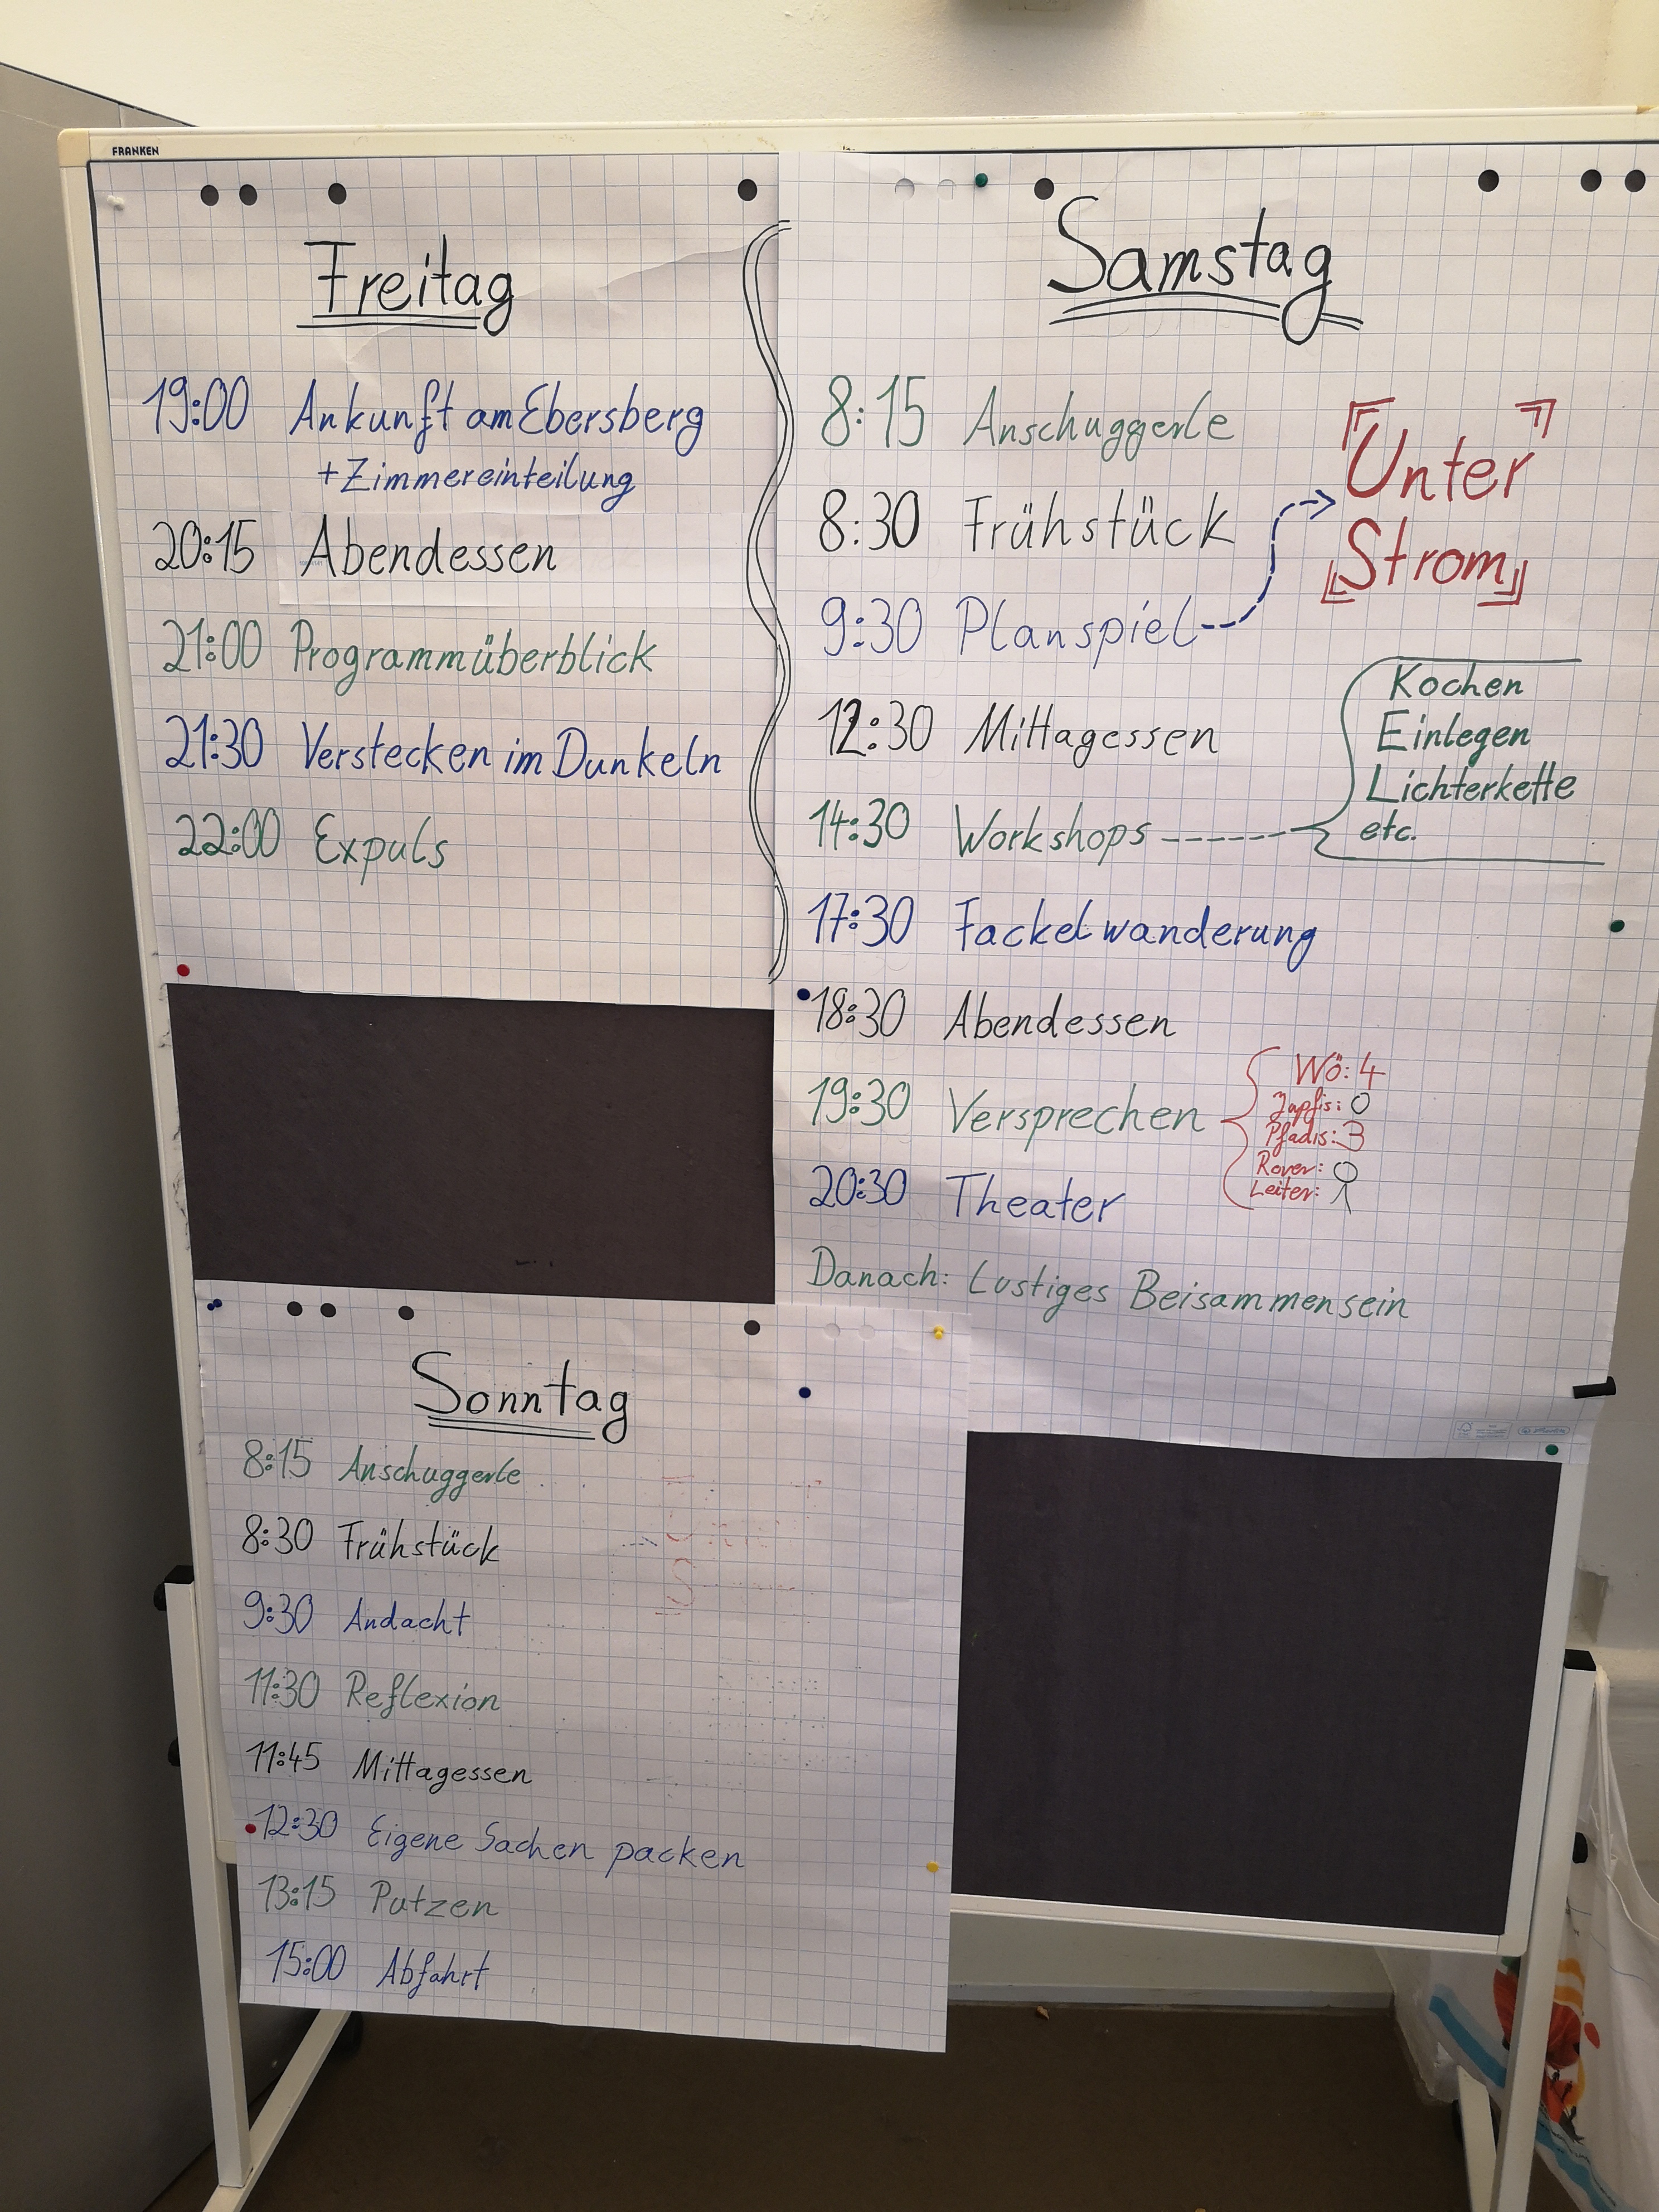 FRANKEN
Freitag
19:00 Ankunft am Ebersberg
+ Zimmereinteilung
20:15 Abendessen
21:00 Programmüberblick
21:30 Verstecken im Dunkeln
22:00 Expuls
Samstag
8:15 Anschuggerle
8:30 Frühstück
9:30 Planspiel
Unter
Strom
12:30 Mittagessen
14:30 Workshops
Kochen
Einlegen
Lichterkette
etc.
17:30 Fackelwanderung
18:30 Abendessen
19:30 Versprechen
Wö: 4
Jupfis: 0
Pfadis: 3
Rover:
Leiter:
20:30 Theater
Danach: Lustiges Beisammensein
Sonntag
8:15 Anschuggerle
8:30 Frühstück
9:30 Andacht
11:30 Reflexion
11:45 Mittagessen
12:30 Eigene Sachen packen
13:15 Putzen
15:00 Abfahrt